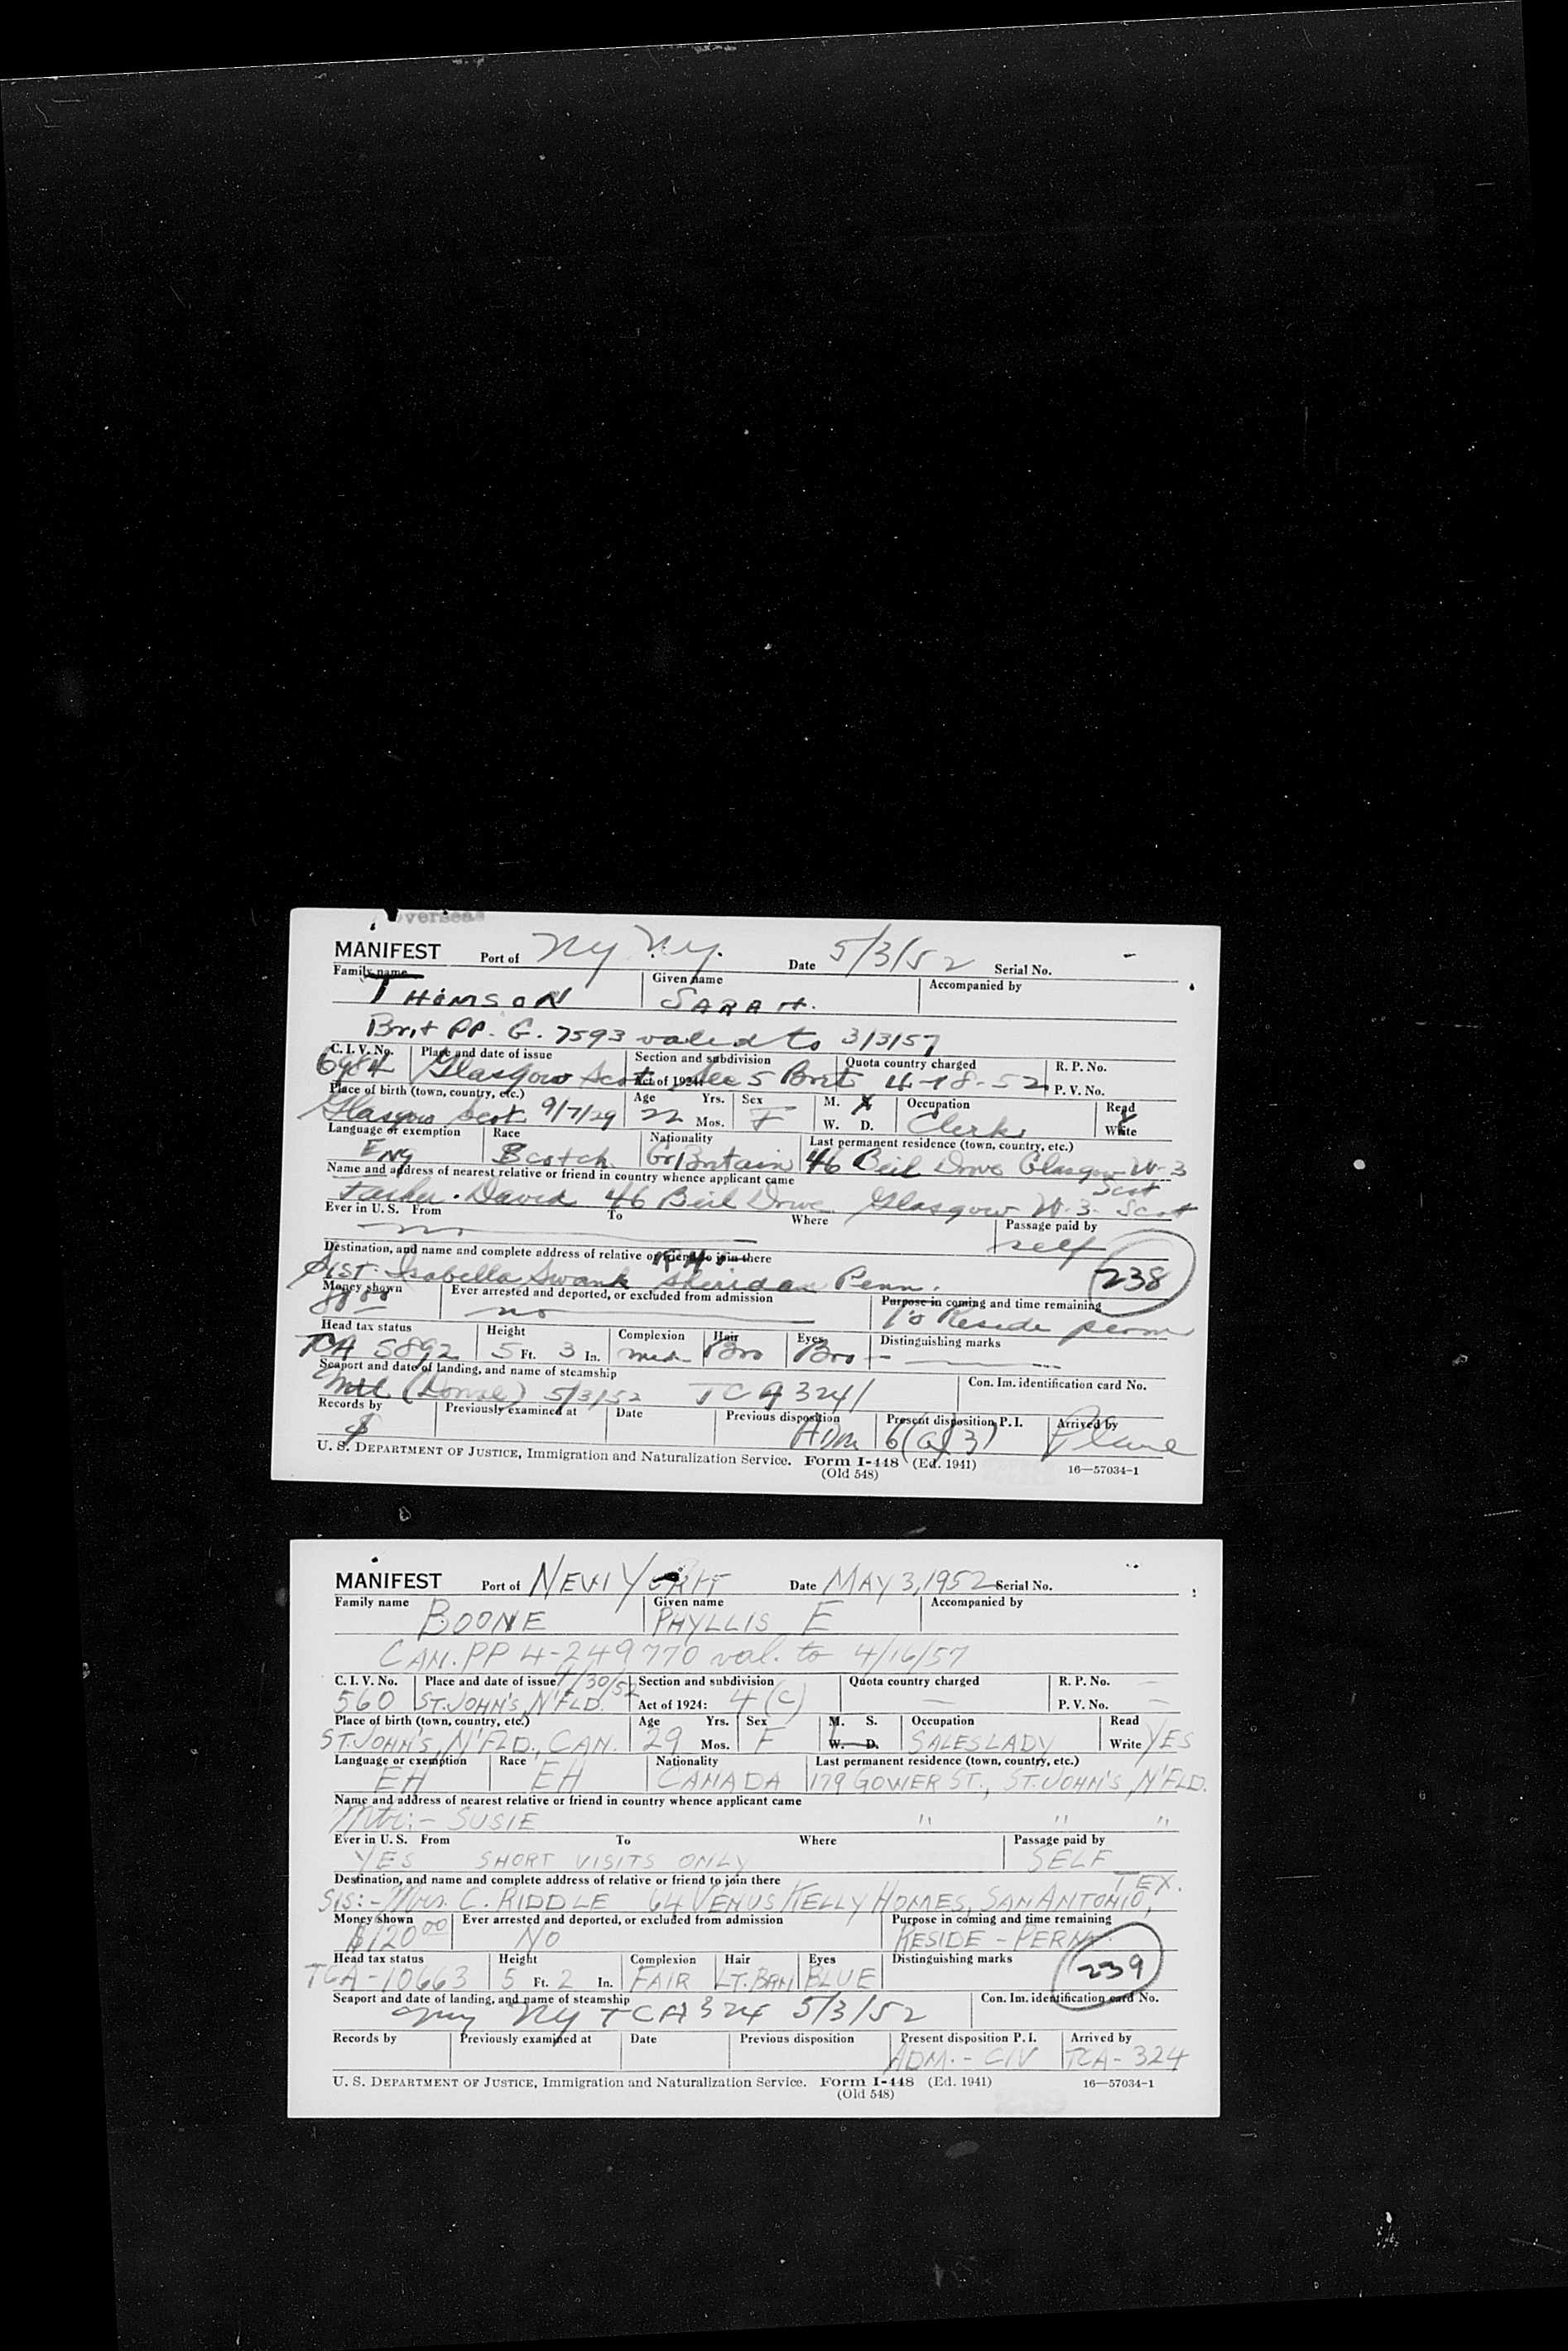 Overseas
MANIFEST Port of NY N.Y. Date 5/3/52 Serial No. -
Family name Given name Accompanied by
THOMSON SARAH.
Brit PP. G. 7593 valid to 3/3/57
C. I. V. No. Place and date of issue Section and subdivision Quota country charged R. P. No.
Glasgow Scot Act of 1924: Sec 5 Brit 4-18-52 P. V. No.
Place of birth (town, country, etc.) Age Yrs. Sex M. X Occupation Read
Glasgow Scot 9/7/29 22 Mos. F W. D. Clerk Write
Language or exemption Race Nationality Last permanent residence (town, country, etc.)
Eng Scotch Gr Britain 46 Beil Drive Glasgow W-3
Scot
Name and address of nearest relative or friend in country whence applicant came
Father. David 46 Beil Drive Glasgow W.3. Scot
Ever in U. S. From To Where Passage paid by
no self
Destination, and name and complete address of relative or friend to join there
Sist. Isabella Swank Sheridan Penn. 238
Money shown Ever arrested and deported, or excluded from admission Purpose in coming and time remaining
no To Reside perm
Head tax status Height Complexion Hair Eyes Distinguishing marks
TCA 5892 5 Ft. 3 In. med Bro Bro -
Seaport and date of landing, and name of steamship Con. Im. identification card No.
Mtl (Dorval) 5/3/52 TCA 324/
Records by Previously examined at Date Previous disposition Present disposition P. I. Arrived by
Adm 6(a)(3) Plane
U. S. DEPARTMENT OF JUSTICE, Immigration and Naturalization Service. Form I-448 (Ed. 1941) 16—57034-1
(Old 548)
MANIFEST Port of NEW YORK Date MAY 3, 1952 Serial No.
Family name Given name Accompanied by
BOONE PHYLLIS E
CAN. PP 4-249770 val. to 4/16/57
C. I. V. No. Place and date of issue 4/30/52 Section and subdivision Quota country charged R. P. No. —
560 ST. JOHN'S, N'FLD. Act of 1924: 4(c) — P. V. No. —
Place of birth (town, country, etc.) Age Yrs. Sex M. S. Occupation Read
ST. JOHN'S, N'FLD., CAN. 29 Mos. F W. D. SALESLADY Write YES
Language or exemption Race Nationality Last permanent residence (town, country, etc.)
EH EH CANADA 179 GOWER ST., ST. JOHN'S, N'FLD.
Name and address of nearest relative or friend in country whence applicant came
Mtr:- SUSIE " " "
Ever in U. S. From To Where Passage paid by
YES SHORT VISITS ONLY SELF
Destination, and name and complete address of relative or friend to join there TEX.
SIS:- Mrs. C. RIDDLE 64 VENUS KELLY HOMES, SAN ANTONIO,
Money shown Ever arrested and deported, or excluded from admission Purpose in coming and time remaining
$120 00 NO RESIDE - PERM.
Head tax status Height Complexion Hair Eyes Distinguishing marks
TCA-10663 5 Ft. 2 In. FAIR LT. BRN BLUE 239
Seaport and date of landing, and name of steamship Con. Im. identification card No.
NY TCA 324 5/3/52
Records by Previously examined at Date Previous disposition Present disposition P. I. Arrived by
ADM. - CIV TCA- 324
U. S. DEPARTMENT OF JUSTICE, Immigration and Naturalization Service. Form I-448 (Ed. 1941) 16—57034-1
(Old 548)